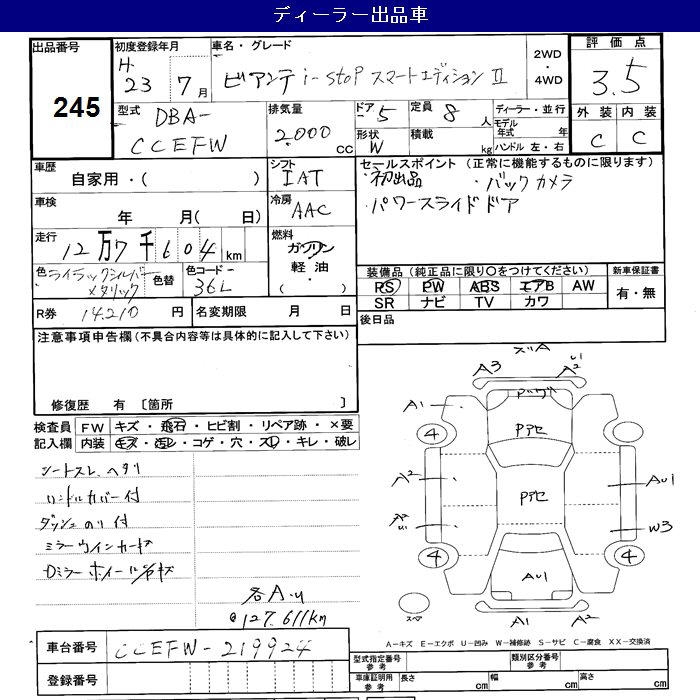 ディーラー出品車
出品番号
245
初度登録年月
H.
23 7月
車名・グレード
ビアンテ i-stop スマートエディションⅡ
2WD
・
4WD
評価点
3.5
型式
DBA-
CCEFW
排気量
2.000
cc
ドア 5
形状
W
定員 8
人
積載
kg
ディーラー・並行
モデル
年式 年
ハンドル 左・右
外装 内装
C C
車歴
自家用・( )
シフト
IAT
セールスポイント (正常に機能するものに限ります)
・初出品 ・バックカメラ
・パワースライドドア
車検
年 月( 日)
冷房
AAC
走行
12万7千604 km
燃料
ガソリン
軽油
・( )
色 ライラックシルバー
メタリック
色替
色コード
36L
装備品 (純正品に限り〇をつけてください)
PS PW ABS エアB AW
SR ナビ TV カワ
新車保証書
有・無
R券 14.210 円
名変期限 月 日
後日品
注意事項申告欄 (不具合内容等は具体的に記入して下さい)
修復歴 有 [箇所 ]
検査員
記入欄
FW キズ・飛石・ヒビ割・リペア跡・×要
内装 キズ・汚レ・コゲ・穴・スレ・キレ・破レ
シートスレ、ヘタリ
ハンドルカバー付
ダッシュのり付
ミラーウインカーキズ
Dミラー ホイール等キズ
各A.u
@127.611km
スリA
A3
A2
A1
Pアセ
4
A2
Pアセ
AU1
W3
4
4
AU1
スペア
A1 A2
A-キズ E-エクボ U-凹み W-補修跡 S-サビ C-腐食 XX-交換済
車台番号 CCEFW-219924
登録番号
型式指定番号
参考
類別区分番号
参考
車庫証明用
参考
長さ cm
幅 cm
高さ cm